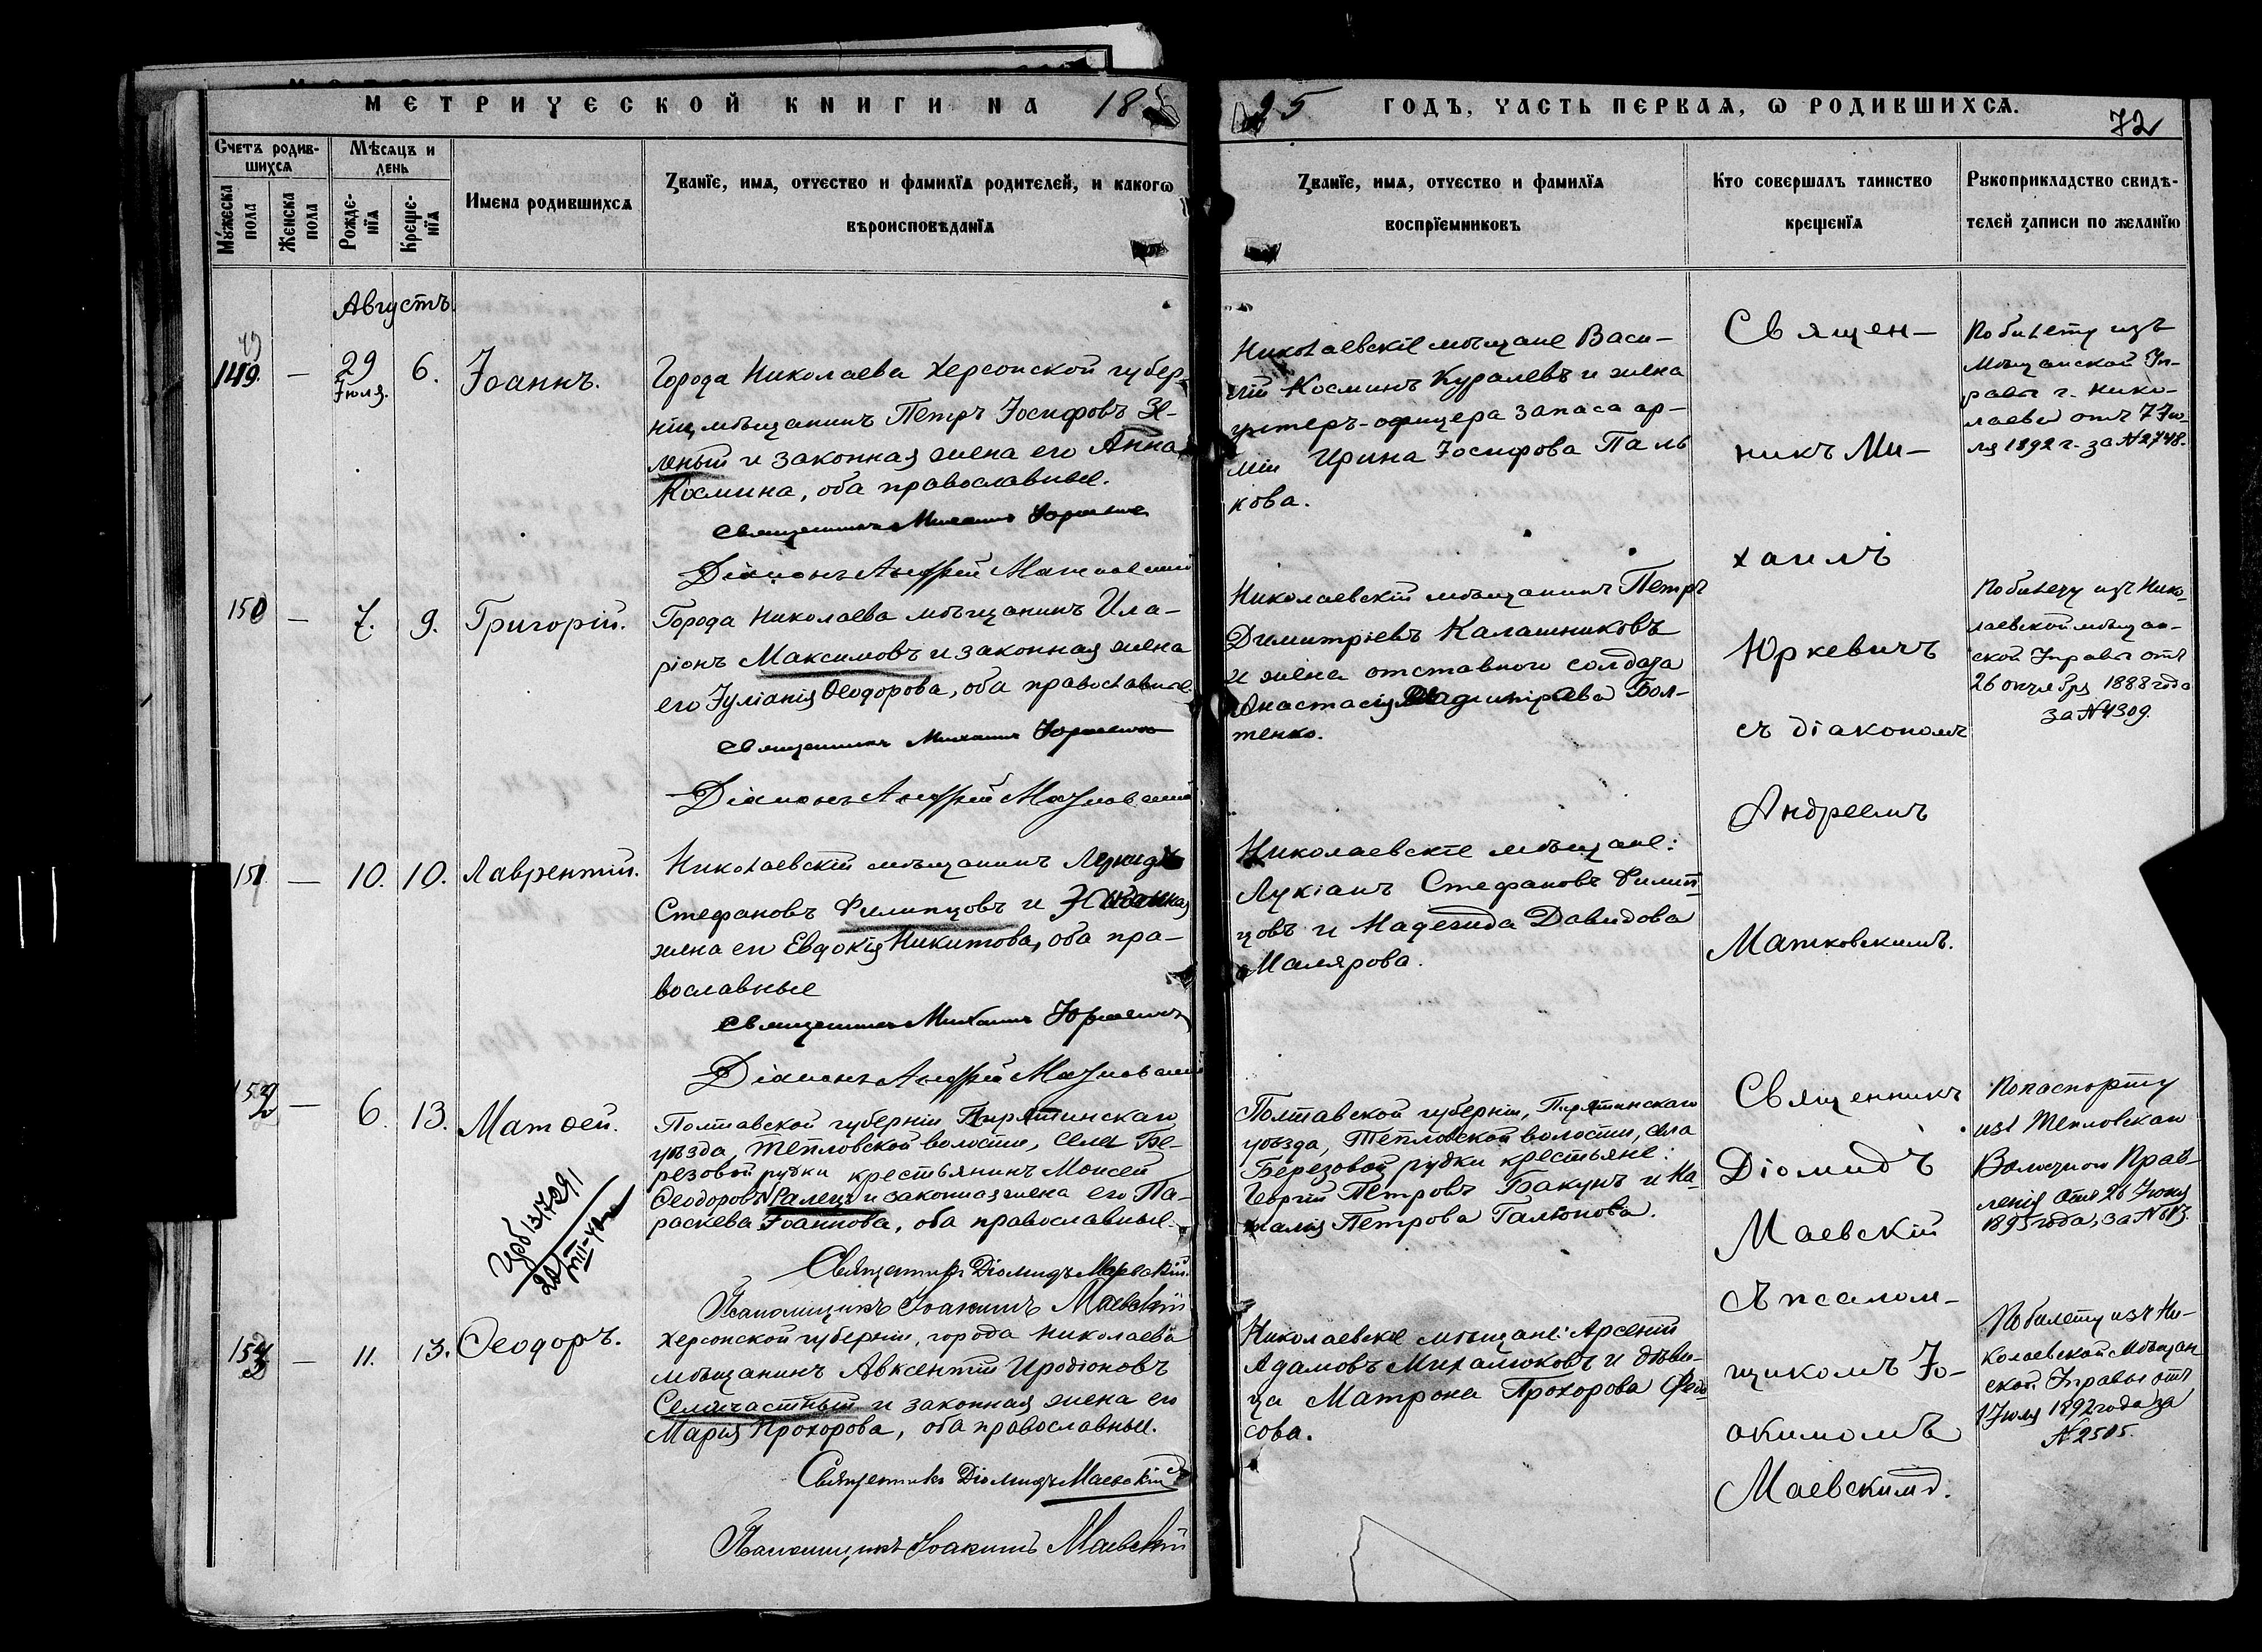 МЕТРИЧЕСКОЙ КНИГИ НА 18
95 ГОДЪ, ЧАСТЬ ПЕРВАЯ, Ѡ РОДИВШИХСЯ.
72
Счетъ родив-
шихся
Мужеска пола
Женска пола
Мѣсяцъ и
день
Рожде-
нїя
Креще-
нїя
Имена родившихся
Званїе, имя, отчество и фамилїя родителей, и какогѡ
вѣроисповѣданїя
Званїе, имя, отчество и фамилїя
воспрїемниковъ
Кто совершалъ таинство
крещенїя
Рукоприкладство свидѣ-
телей записи по желанїю
Августъ.
149.
—
29
Іюля.
6.
Іоаннъ.
Города Николаева Херсонской губер-
ніи, мѣщанинъ Петръ Іосифовъ Зе-
леный и законная жена его Анна
Космина, оба православные.
Священникъ Михаилъ Юркевичъ
Діаконъ Андрей Матковскій
Николаевскіе мѣщане Васи-
лій Косминъ Куралевъ и жена
унтеръ-офицера запаса ар-
міи Ирина Іосифова Паль
кова.
По билету изъ
Мѣщанской Уп-
равы г. Нико-
лаева отъ 7 Ію-
ля 1892 г. за № 2748.
150
—
7.
9.
Григорій.
Города Николаева мѣщанинъ Ила-
ріонъ Максимовъ и законная жена
его Іуліанія Ѳеодорова, оба православные.
Священникъ Михаилъ Юркевичъ
Діаконъ Андрей Матковскій
Николаевскій мѣщанинъ Петръ
Димитріевъ Калашниковъ
и жена отставного солдата
Анастасія Димитріева Бол-
тенко.
По билету изъ Нико-
лаевской мѣщан-
ской Управы отъ
26 октября 1888 года
за № 4309.
151.
—
10.
10.
Лаврентій.
Николаевскій мѣщанинъ
Стефановъ Филипцовъ и законная
жена его Евдокія Никитова, оба пра-
вославные
Священникъ Михаилъ Юркевичъ
Діаконъ Андрей Матковскій
Николаевскіе мѣщане:
Лукіанъ Стефановъ Филип
цовъ и Надежда Давидова
Малярова.
Священ-
никъ Ми-
хаилъ
Юркевичъ
съ діакономъ
Андреемъ
Матковскимъ.
152
—
6.
13.
Матѳей.
Полтавской губерніи Пирятинскаго
уѣзда, Тепловской волости, села Бе-
резовой рудки крестьянинъ Моисей
Ѳеодоровъ Галецъ и законная жена его Па-
раскева Іоаннова, оба православные.
Священникъ Діомидъ Маевскій.
Псаломщикъ Іоакимъ Маевскій
Полтавской губерніи, Пирятинскаго
уѣзда, Тепловской волости, села
Березовой рудки крестьяне:
Георгій Петровъ Бакунъ и На-
талія Петрова Галюнова.
По паспорту
изъ Тепловскаго
Волостного Прав-
ленія отъ 26 Іюня
1895 года, за №
153
—
11.
13.
Ѳеодоръ.
Херсонской губерніи, города Николаева
мѣщанинъ Авксентій Иродіоновъ
Семичастный и законная жена его
Марія Прохорова, оба православные.
Священникъ Діомидъ Маевскій
Псаломщикъ Іоакимъ Маевскій
Николаевскіе мѣщане: Арсеній
Адамовъ Михалюковъ и дѣви-
ца Матрона Прохорова Федо
сова.
По билету изъ Ни-
колаевской Мѣщан
ской Управы отъ
1 Іюля 1892 года за
№ 2505.
Священникъ
Діомидъ
Маевскій
съ псалом-
щикомъ Іо-
акимомъ
Маевскимъ.